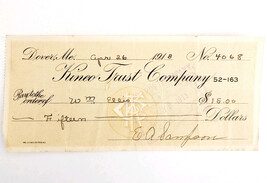 Dover, Me. Apr 26 1918 No. 4068
Kineo Trust Company 52-163
Pay to the order of W M $15.00
Fifteen Dollars
E A Sampson